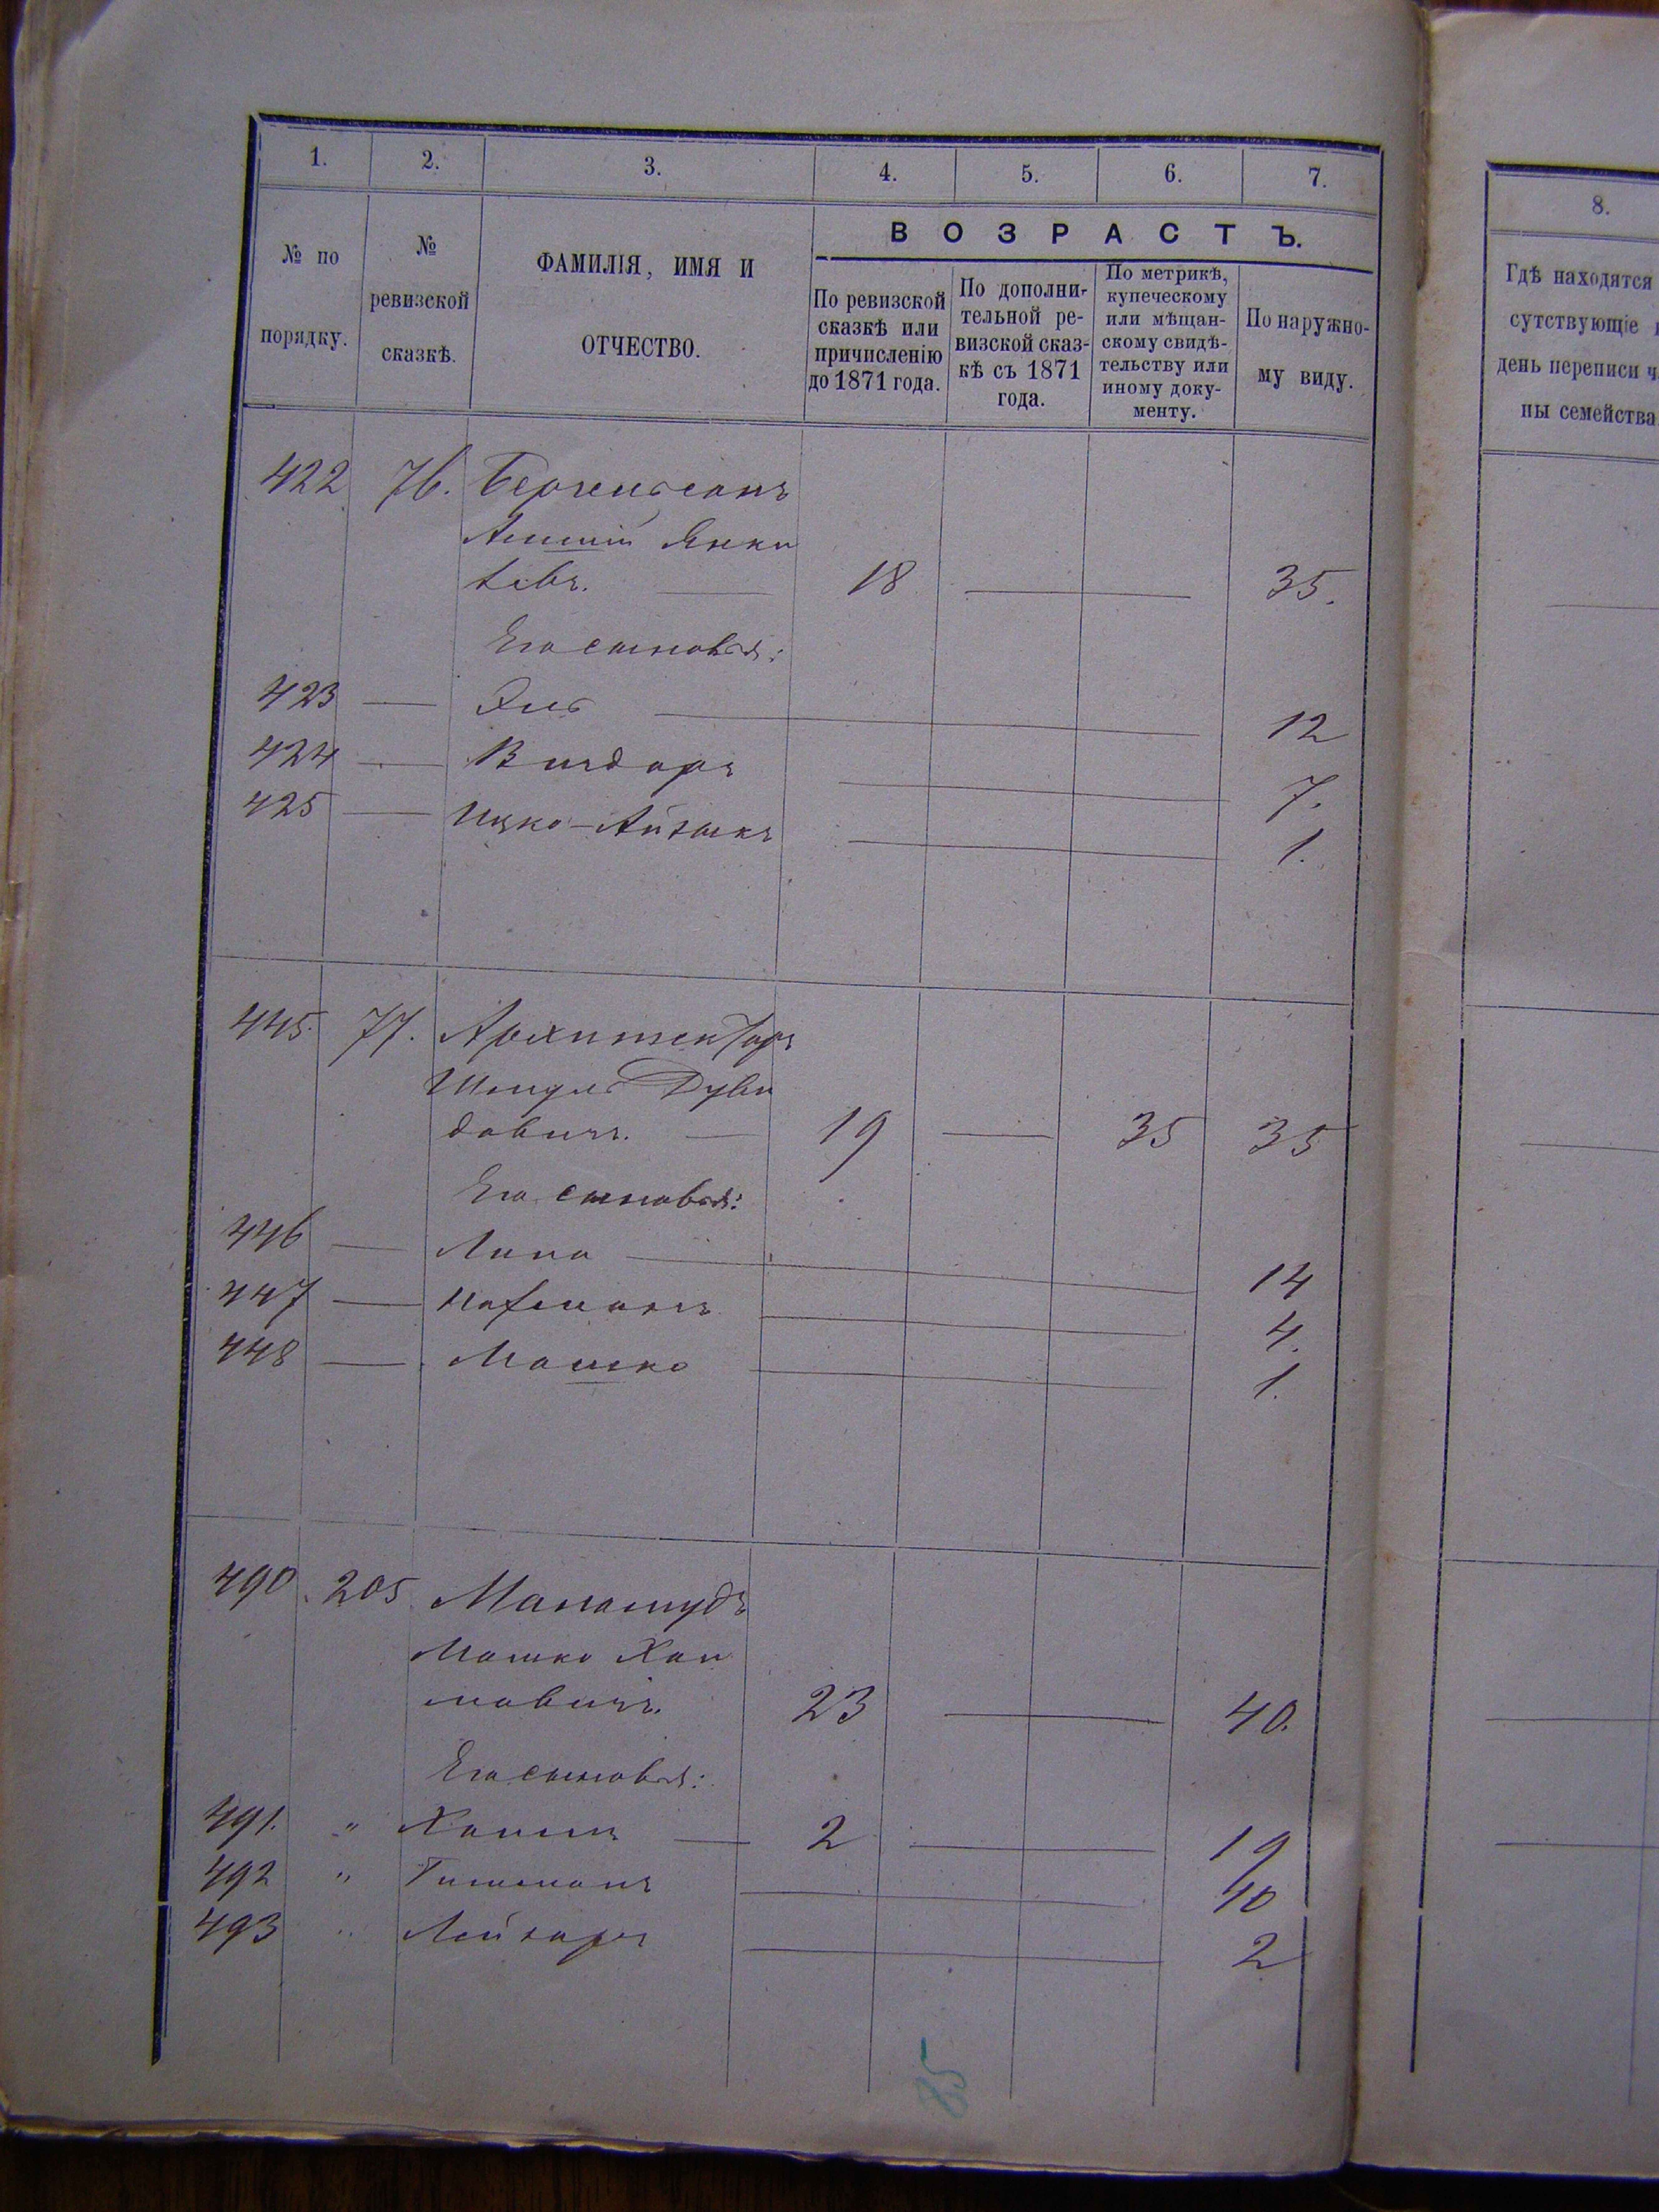 1. 2. 3. 4. 5. 6. 7.
№ по порядку.
№ ревизской сказкѣ.
ФАМИЛІЯ, ИМЯ И ОТЧЕСТВО.
ВОЗРАСТЪ.
По ревизской сказкѣ или причисленію до 1871 года.
По дополнительной ревизской сказкѣ съ 1871 года.
По метрикѣ, купеческому или мѣщанскому свидѣтельству или иному документу.
По наружному виду.
422 76.
Янки
18 35.
Его сыновья:
423 12
424 7.
425 Ицко-Айзыкъ 1.
445. 77. Архитекторъ
Дуви
довичъ. 19 35 35
Его сыновья:
446 Липа 14
447 4.
448 Мошко 1.
490 205
Мошко Хаи
мовичъ. 23 40.
Его сыновья:
491. " Хаимъ 2 19
492 " 10
493 " Лейзаръ 2
85
8.
Гдѣ находятся
сутствующіе
день переписи ч
ны семейства